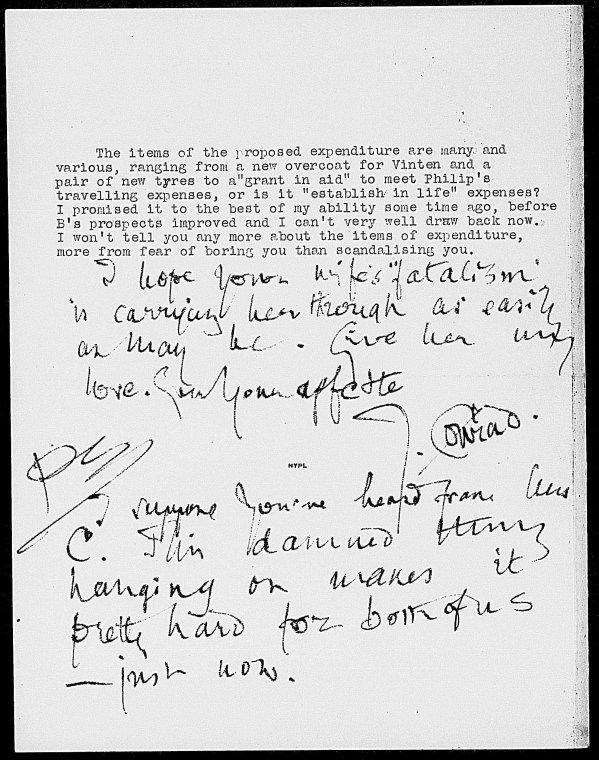 The items of the proposed expenditure are many and
various, ranging from a new overcoat for Vinten and a
pair of new tyres to a"grant in aid" to meet Philip's
travelling expenses, or is it "establish in life" expenses?
I promised it to the best of my ability some time ago, before
B's prospects improved and I can't very well draw back now.
I won't tell you any more about the items of expenditure,
more from fear of boring you than scandalising you.
I hope your wife's "fatalism"
is carrying her through as easily
as may be. Give her my
love. Ever Your affcte
J. Conrad.
NYPL
PS
I suppose you've heard from Mrs
C. This damned thing
hanging on makes it
pretty hard for both of us
—just now.